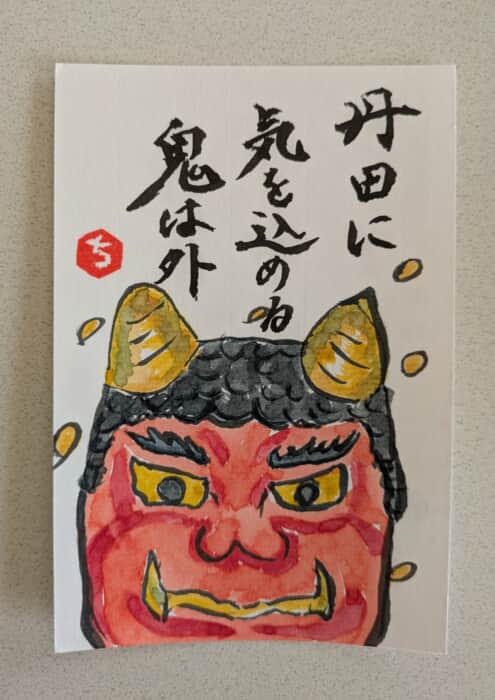 丹田に
気を込め
鬼は外
ち